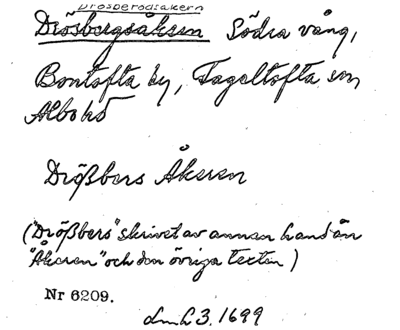 Drösbergsåkern
Drösbergsåkern Södra vång,
Bontofta by, Fågeltofta sn
Albo hd
Drößbers Åkeren
("Drößbers" skrivet av annan hand än
"Åkeren" och den övriga texten)
Nr 6209.
LmL 3. 1699